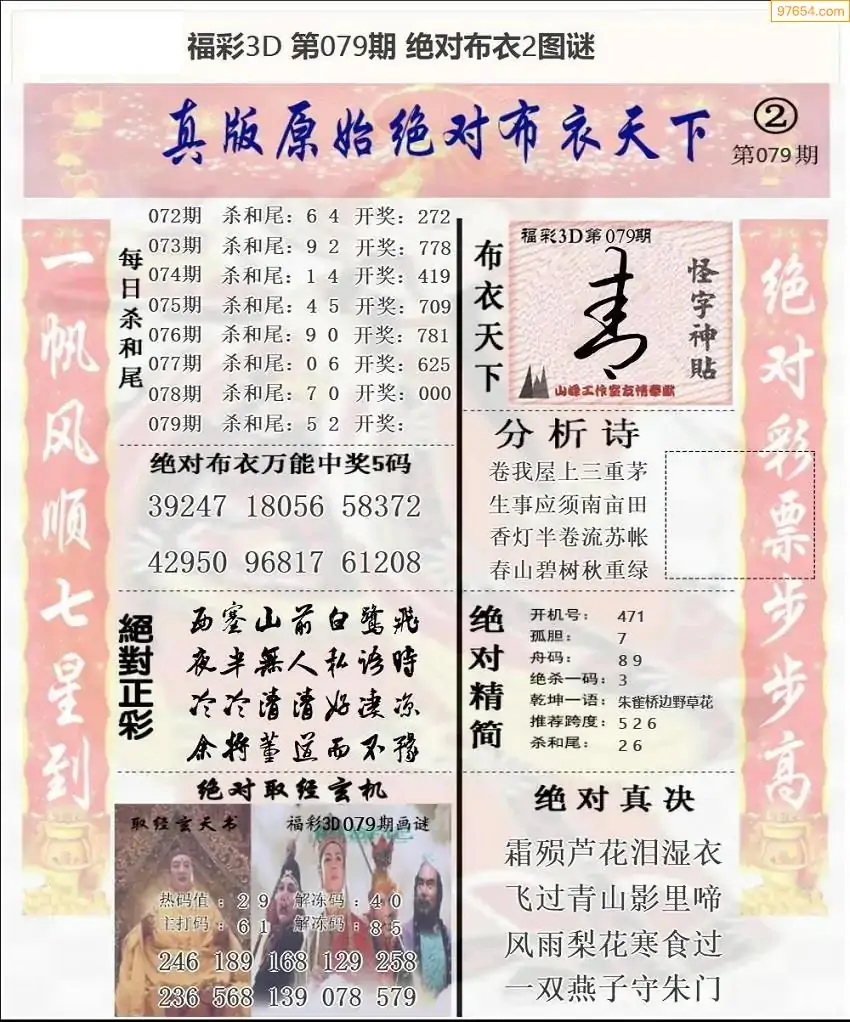 97654.com
福彩3D 第079期 绝对布衣2图谜
真版原始绝对布衣天下
②
第079期
一帆风顺七星到
每日杀和尾
072期 杀和尾：6 4 开奖：272
073期 杀和尾：9 2 开奖：778
074期 杀和尾：1 4 开奖：419
075期 杀和尾：4 5 开奖：709
076期 杀和尾：9 0 开奖：781
077期 杀和尾：0 6 开奖：625
078期 杀和尾：7 0 开奖：000
079期 杀和尾：5 2 开奖：
绝对布衣万能中奖5码
39247 18056 58372
42950 96817 61208
絕對正彩
西塞山前白鹭飛
夜半無人私语時
冷冷清清好凄凉
余将董道而不豫
绝对取经玄机
取经玄天书
福彩3D079期画谜
热码值：2 9 解冻码：4 0
主打码：6 1 解冻码：8 5
246 189 168 129 258
236 568 139 078 579
布衣天下
福彩3D第079期
青
怪字神貼
山峰工作室友情奉献
分析诗
卷我屋上三重茅
生事应须南亩田
香灯半卷流苏帐
春山碧树秋重绿
绝对精简
开机号：471
孤胆：7
舟码：8 9
绝杀一码：3
乾坤一语：朱雀桥边野草花
推荐跨度：5 2 6
杀和尾：2 6
绝对真决
霜殒芦花泪湿衣
飞过青山影里啼
风雨梨花寒食过
一双燕子守朱门
绝对彩票步步高